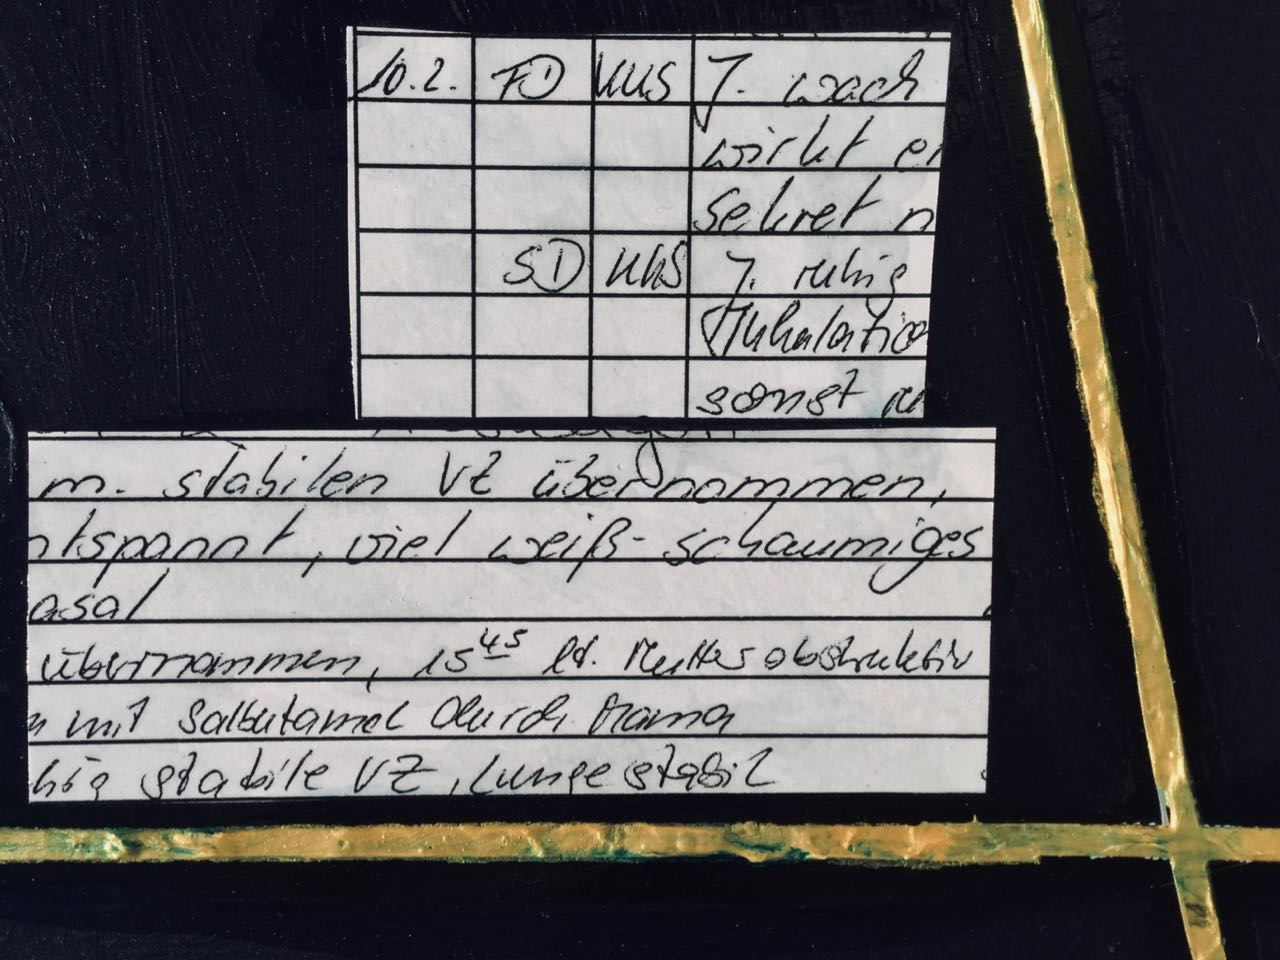 10.2. FD KUS J. wach
wirkt e
Sekret n
SD KUS J. ruhig
Inhalatio
sonst ru
m. stabilen VZ übernommen,
ntspannt, viel weiß-schaumiges
asal
übernommen, 15 45 lt. Mutter obstruktiv
n mit Salbutamol durch Mama
hig stabile VZ, Lunge stabil